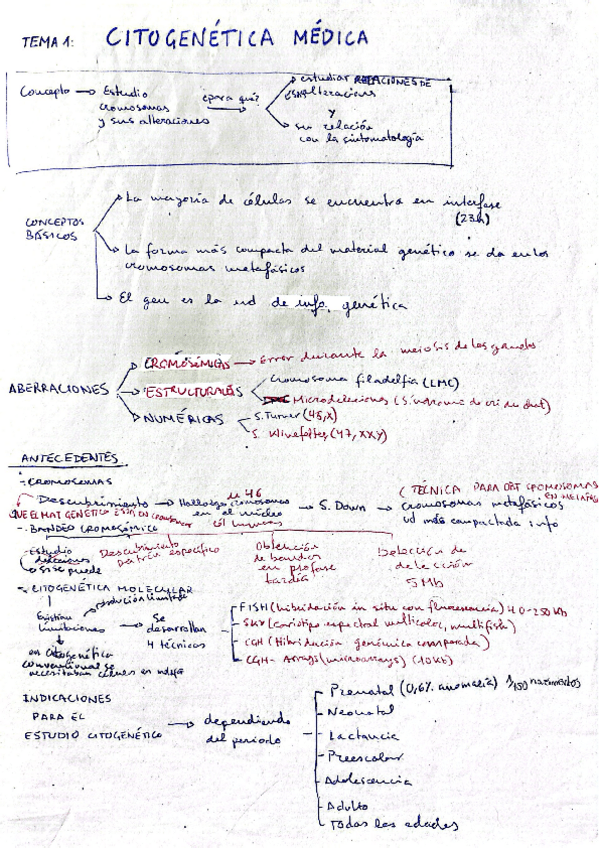 TEMA 1: CITOGENÉTICA MÉDICA
Concepto → Estudio cromosomas y sus alteraciones
¿para qué?
estudiar RELACIONES DE
alteraciones
y
su relación
con la sintomatología
CONCEPTOS BÁSICOS
La mayoría de células se encuentra en interfase
(23h)
La forma más compacta del material genético se da en los
cromosomas metafásicos
El gen es la ud de info. genética
ABERRACIONES
CROMOSÓMICAS → Error durante la meiosis de los gametos
ESTRUCTURALES
Cromosoma filadelfia (LMC)
Microdeleciones (Síndrome de cri du chat)
NUMÉRICAS
S. Turner (45,X)
S. Klinefelter (47, XXY)
ANTECEDENTES
- CROMOSOMAS
Descubrimiento → Hallazgo de 46 cromosomas
en el núcleo
→ S. Down →
(TÉCNICA PARA OBT CROMOSOMAS
EN METAFASE
cromosomas metafásicos
ud más compactada info
QUE EL MAT GENÉTICO ESTÁ EN
- BANDEO CROMOSÓMICO
- Estudio
si se puede
Descubrimiento
patrón específico
Obtención
de bandas
en profase
tardía
de
delección
5 Mb
- CITOGENÉTICA MOLECULAR
Existían
limitaciones
→ Se
desarrollan
4 técnicas
en citogenética
convencional se
necesitaban células en
- FISH (hibridación in situ con fluorescencia) 40-250 Kb
- SKY (cariotipo espectral multicolor, multifish)
- CGH (Hibridación genómica comparada)
- CGH-Arrays (microarrays) (10 Kb)
INDICACIONES
PARA EL
ESTUDIO CITOGENÉTICO
→ dependiendo
del periodo
- Prenatal (0,6% anomalía) nacimientos
- Neonatal
- Lactancia
- Preescolar
- Adolescencia
- Adulto
- Todas las edades